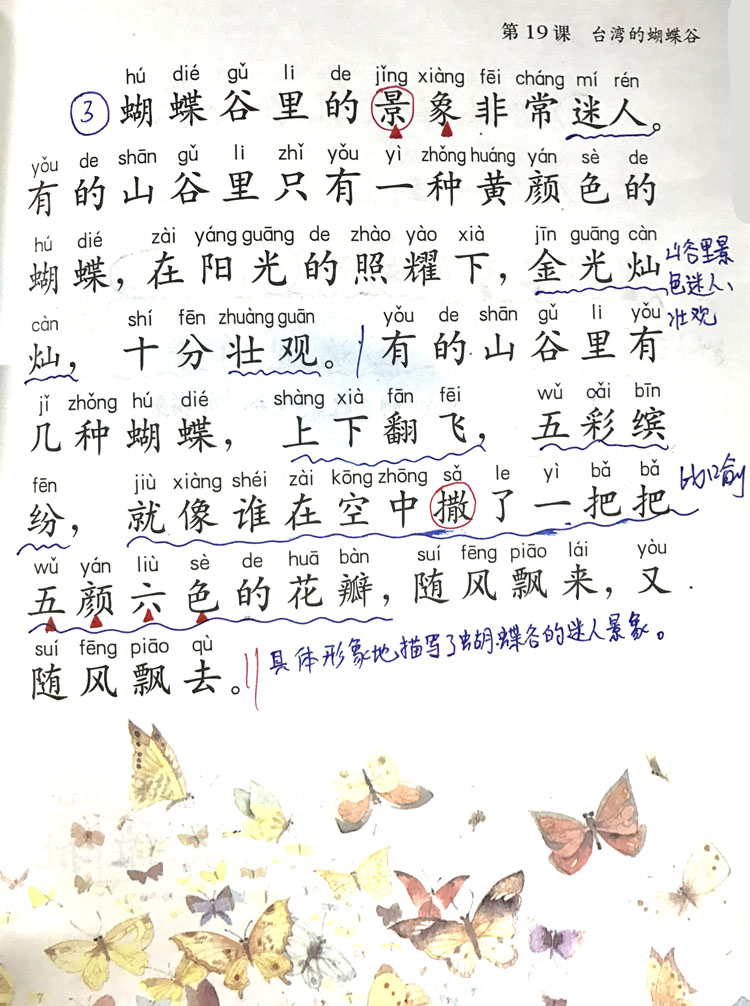 第19课 台湾的蝴蝶谷
hú dié gǔ li de jǐng xiàng fēi cháng mí rén
③ 蝴蝶谷里的景象非常迷人。
yǒu de shān gǔ li zhǐ yǒu yì zhǒng huáng yán sè de
有的山谷里只有一种黄颜色的
hú dié zài yáng guāng de zhào yào xià jīn guāng càn
蝴蝶，在阳光的照耀下，金光灿
山谷里景
色迷人、
壮观
càn shí fēn zhuàng guān yǒu de shān gǔ li yǒu
灿，十分壮观。有的山谷里有
jǐ zhǒng hú dié shàng xià fān fēi wǔ cǎi bīn
几种蝴蝶，上下翻飞，五彩缤
fēn jiù xiàng shéi zài kōng zhōng sǎ le yì bǎ bǎ
纷，就像谁在空中撒了一把把
比喻
wǔ yán liù sè de huā bàn suí fēng piāo lái yòu
五颜六色的花瓣，随风飘来，又
suí fēng piāo qù
随风飘去。
具体形象地描写了蝴蝶谷的迷人景象。